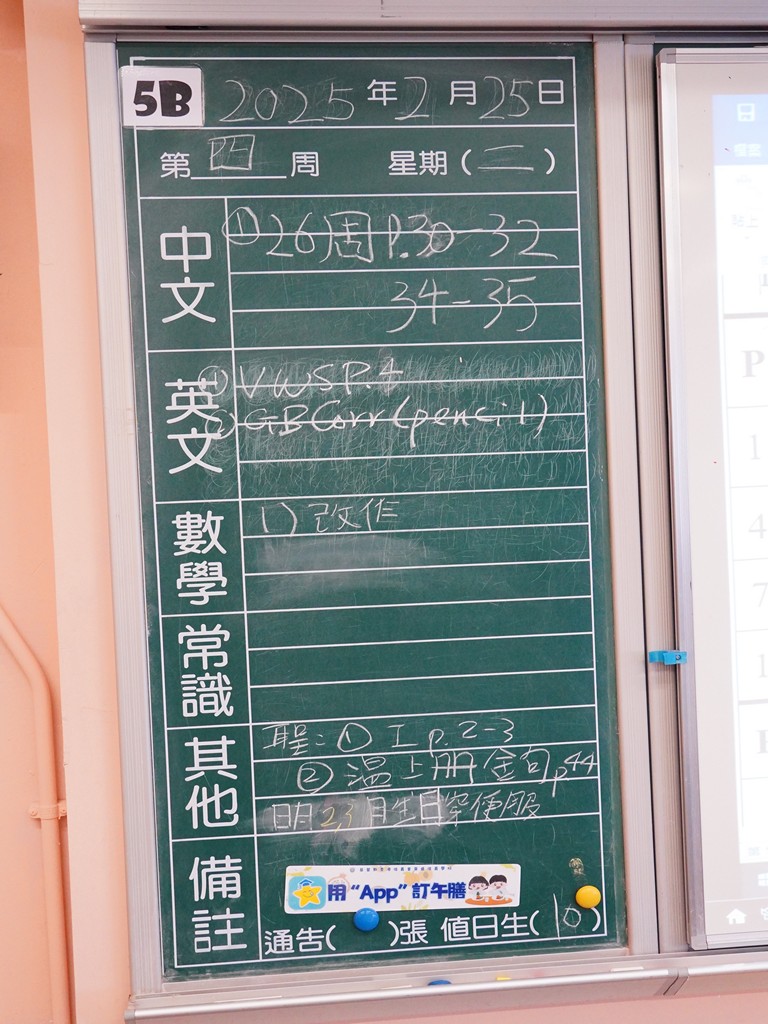 5B 2025年2月25日
第 四 周 星期(二)
中文 ①26周P.30-32
34-35
英文 ① VWSP.4
② GBCorr(pencil)
數學 1) 改作
常識
其他 聖:① I p.2-3
② 溫上册金句p44
明日2,3月生日穿便服
備註
用“App”訂午膳
通告( )張 值日生(10)
P
1
4
7
1